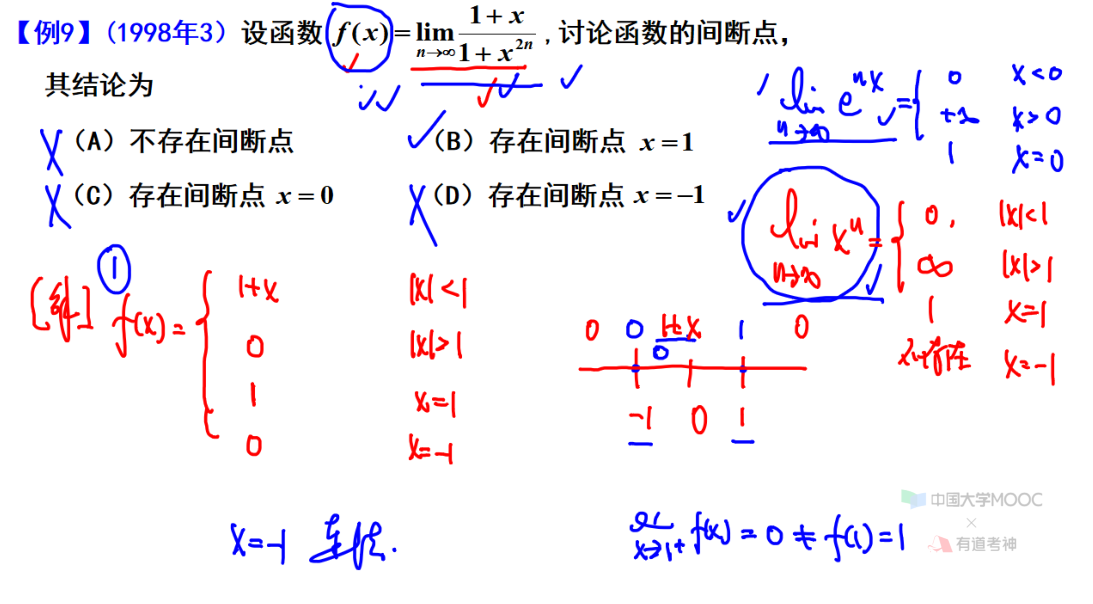 【例9】(1998年3) 设函数 f(x) = lim_{n→∞} (1+x)/(1+x^{2n}) ,讨论函数的间断点，
其结论为
(A) 不存在间断点 (B) 存在间断点 x=1
(C) 存在间断点 x=0 (D) 存在间断点 x=−1
lim_{n→∞} e^{nx} = { 0 x<0
+∞ x>0
1 x=0
lim_{n→∞} x^n = { 0, |x|<1
∞ |x|>1
1 x=1
不存在 x=-1
①
[解] f(x) = { 1+x |x|<1
0 |x|>1
1 x=1
0 x=-1
0 0 1+x 1 0
0
-1 0 1
x=-1 连续.
lim_{x→1+} f(x) = 0 ≠ f(1) = 1
中国大学MOOC
×
有道考神